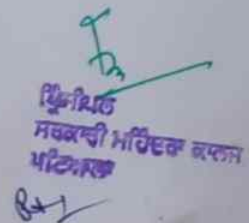 ਪ੍ਰਿੰਸੀਪਲ
ਸਰਕਾਰੀ ਮਹਿੰਦਰਾ ਕਾਲਜ
ਪਟਿਆਲਾ